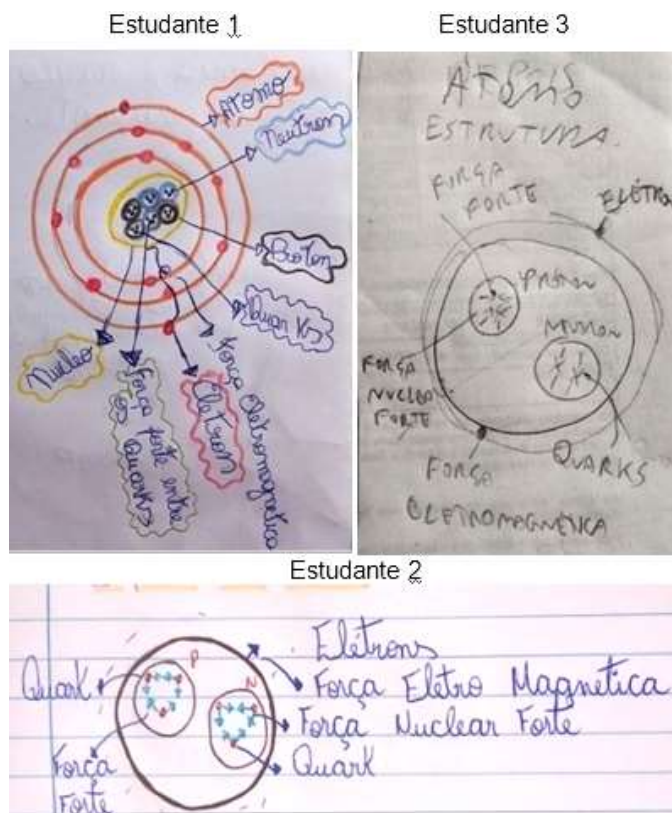 Estudante 1
Átomo
Neutron
Proton
Quarks
Força Eletromagnetica
Eletron
Força forte entre
os Quarks
Nucleo
Estudante 3
ÁTOMO
ESTRUTURA
FORÇA
FORTE
PRÓTON
FORÇA
NUCLEAR
FORTE
QUARKS
FORÇA
ELETROMAGNÉTICA
Estudante 2
Quark
P
N
Elétrons
Força Eletro Magnetica
Força Nuclear Forte
Quark
Força
Forte